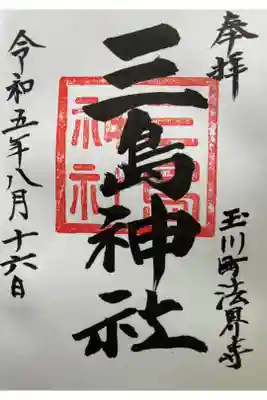 奉拝
玉川町法界寺
三島神社
令和五年八月十六日
三島神社